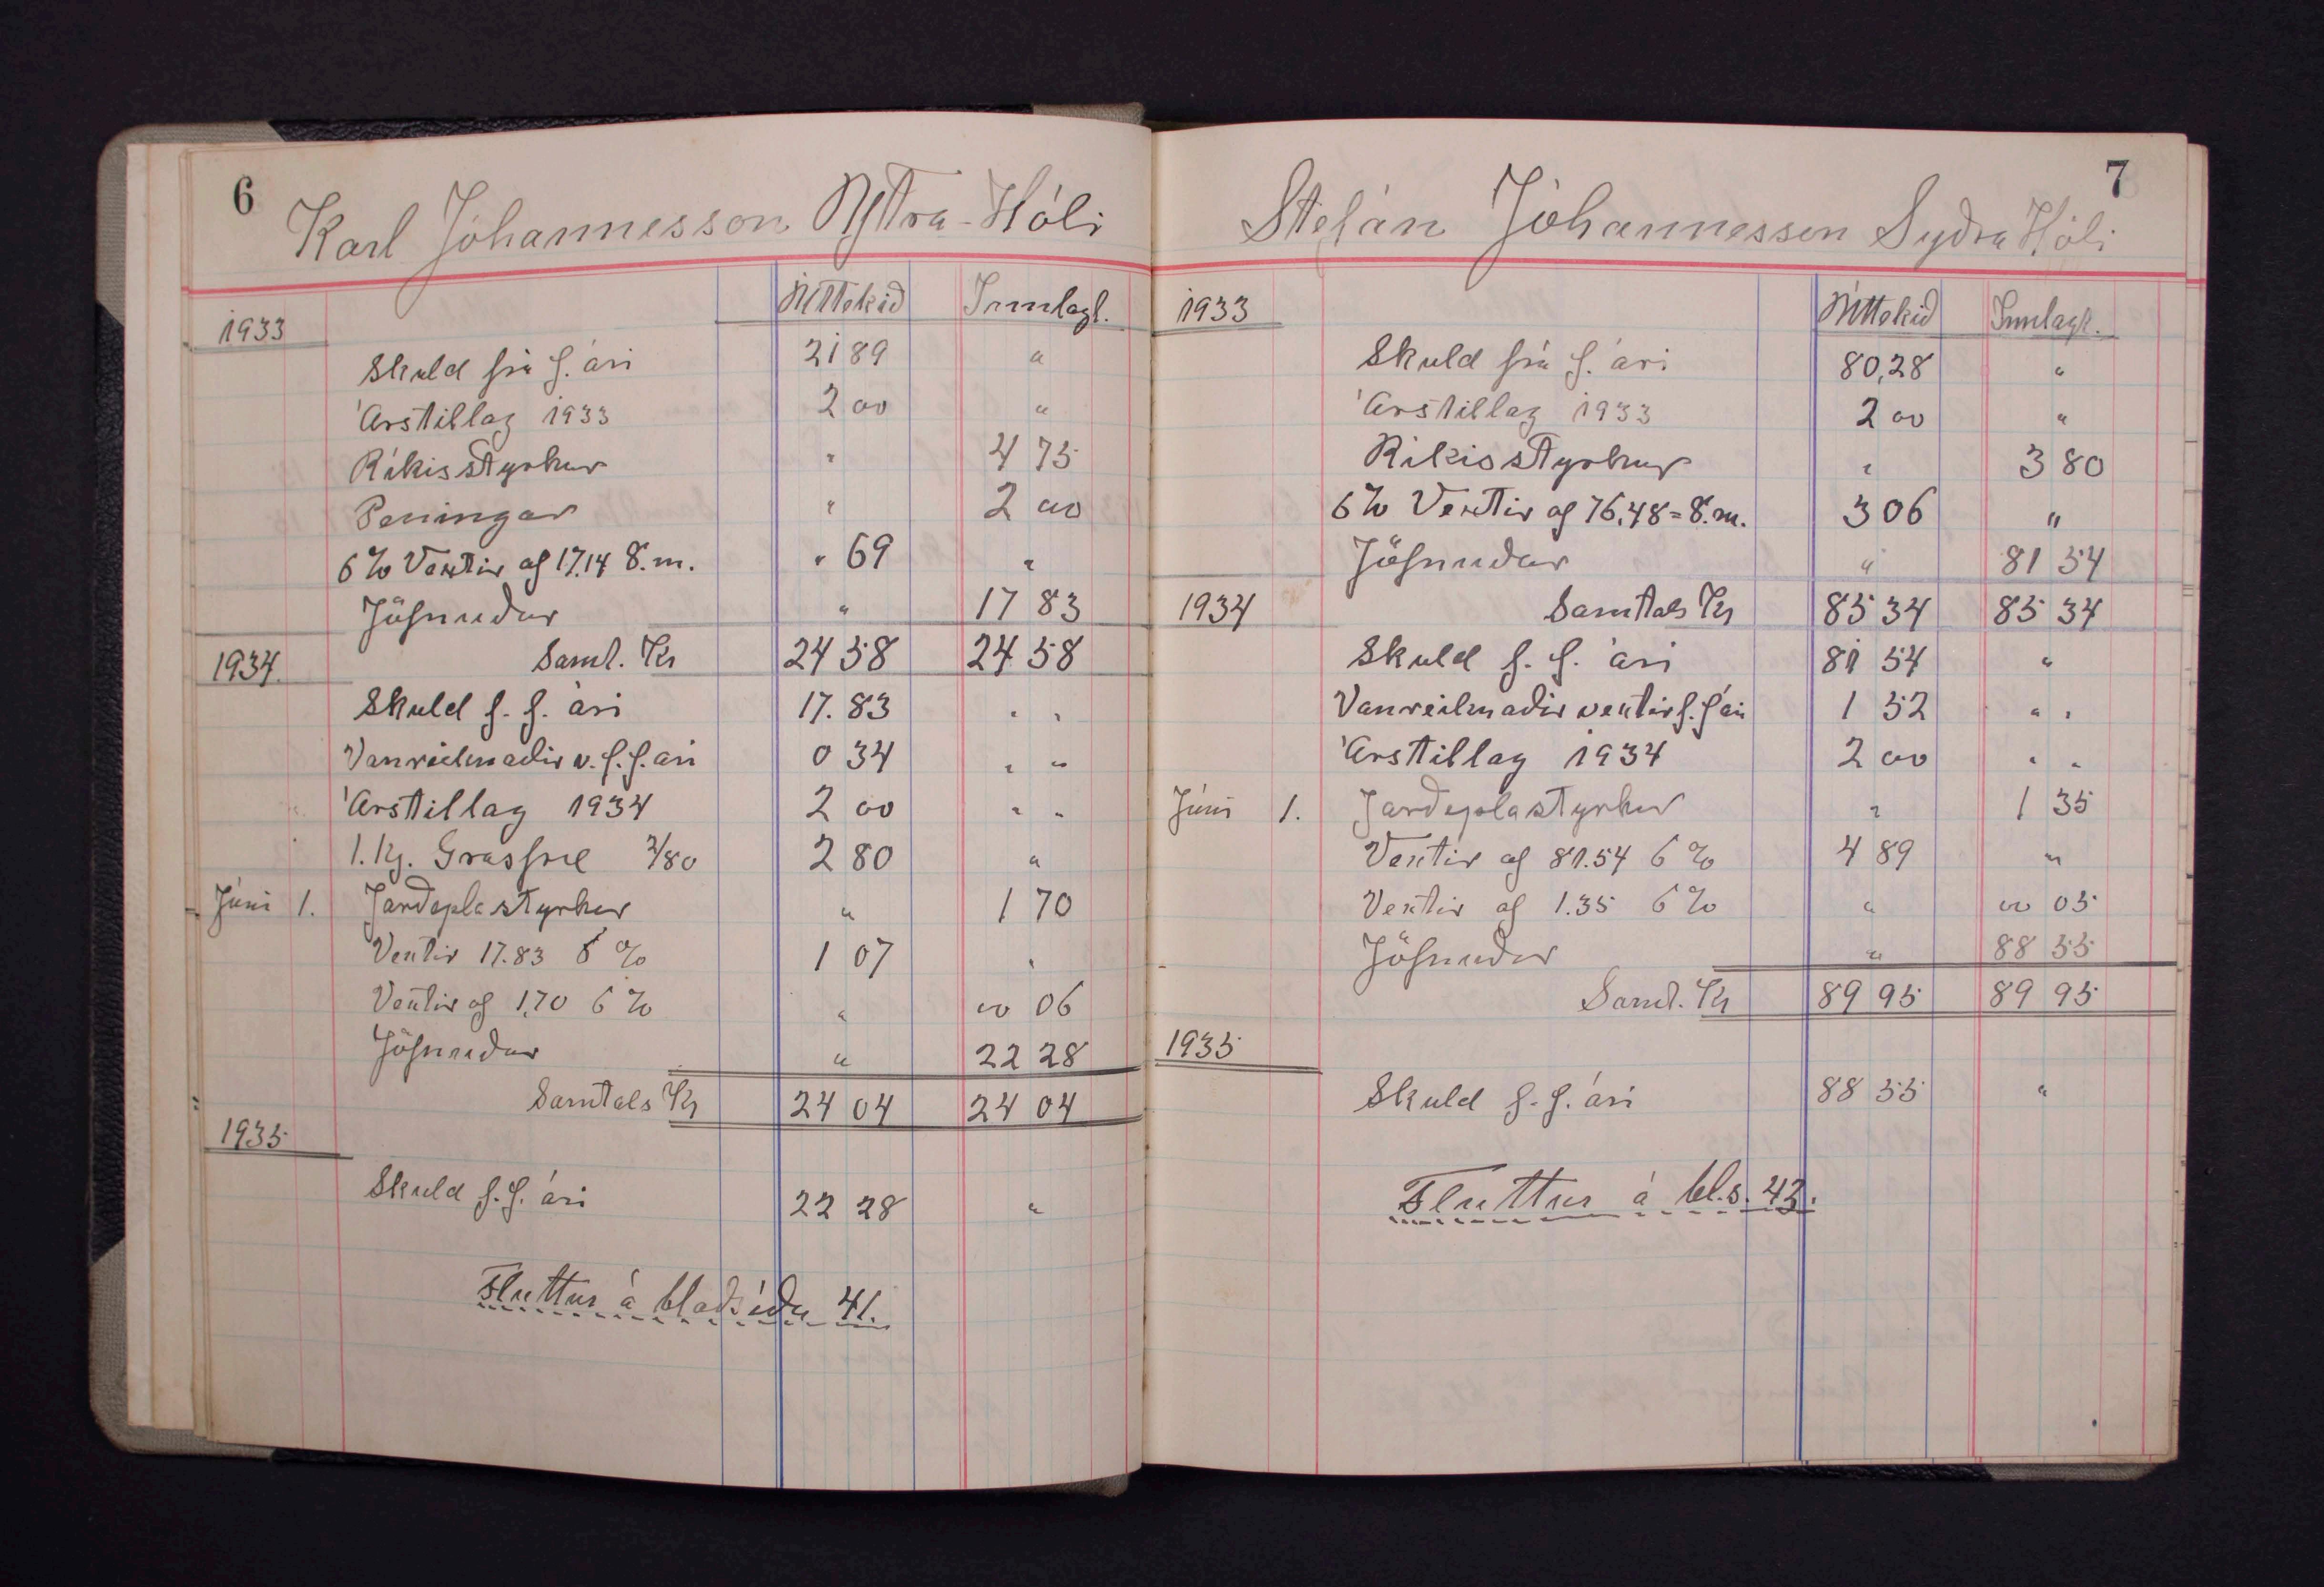 6
Karl Jóhannesson Ytra-Hóli
Úttekið Innlagt.
1933
Skuld frá f. ári 21 89 "
Árstillag 1933 2 00 "
Ríkisstyrkur " 4 75
Peningar " 2 00
6% Vextir af 17.14 8.m. " 69 "
Jöfnuður " 17 83
1934. Saml. Kr 24 58 24 58
Skuld f. f. ári 17.83 " "
Vanreiknaðir v. f. f. ári 0 34 " "
Árstillag 1934 2 00 " "
1. Kg. Grasfræ 2/80 2 80 "
Júní 1. Jarðeplastyrkur " 1 70
Vextir 17.83 6 % 1 07 "
Vextir af 1,70 6 % " 00 06
Jöfnuður " 22 28
Samtals Kr 24 04 24 04
1935
Skuld f. f. ári 22 28 "
Fluttur á blaðsíðu 41.
7
Stefán Jóhannesson Syðra Hóli
1933 Úttekið Innlagt.
Skuld frá f. ári 80,28 "
Árstillag 1933 2 00 "
Ríkisstyrkur " 3 80
6% Vextir af 76,48 = 8.m. 3 06 "
Jöfnuður " 81 54
1934 Samtals Kr 85 34 85 34
Skuld f. f. ári 81 54 "
Vanreiknaðir vextir f. f ári 1 52 " "
Árstillag 1934 2 00 " "
Júní 1. Jarðeplastyrkur " 1 35
Vextir af 81.54 6 % 4 89 "
Vextir af 1.35 6 % " 00 05
Jöfnuður " 88 55
Saml. Kr 89 95 89 95
1935
Skuld f. f. ári 88 55 "
Fluttur á bl.s. 43.